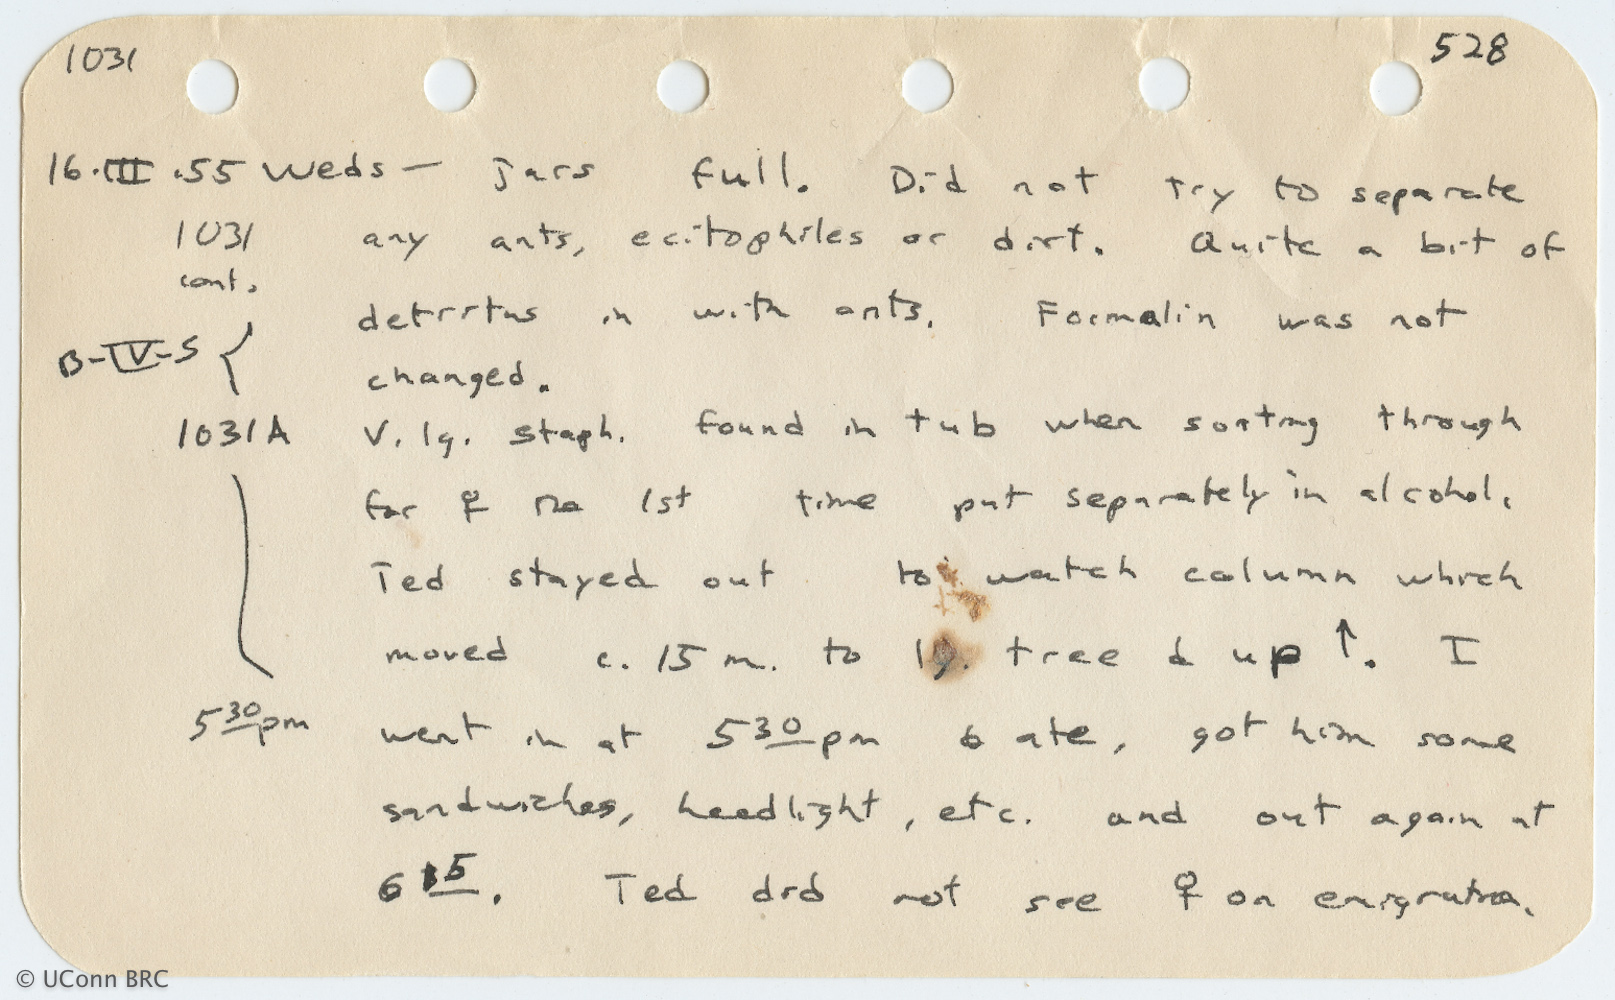 1031 528
16·III·55 Weds — Jars full. Did not try to separate
1031 any ants, ecitophiles or dirt. Quite a bit of
cont.
detritus in with ants. Formalin was not
B-IV-5 {
changed.
1031A V. lg. staph. found in tub when sorting through
for ♀ the 1st time put separately in alcohol.
Ted stayed out to watch column which
moved c. 15 m. to lg. tree & up ↑. I
5 30 pm went in at 5 30 pm & ate, got him some
sandwiches, headlight, etc. and out again at
6 15. Ted did not see ♀ on emigration.
© UConn BRC